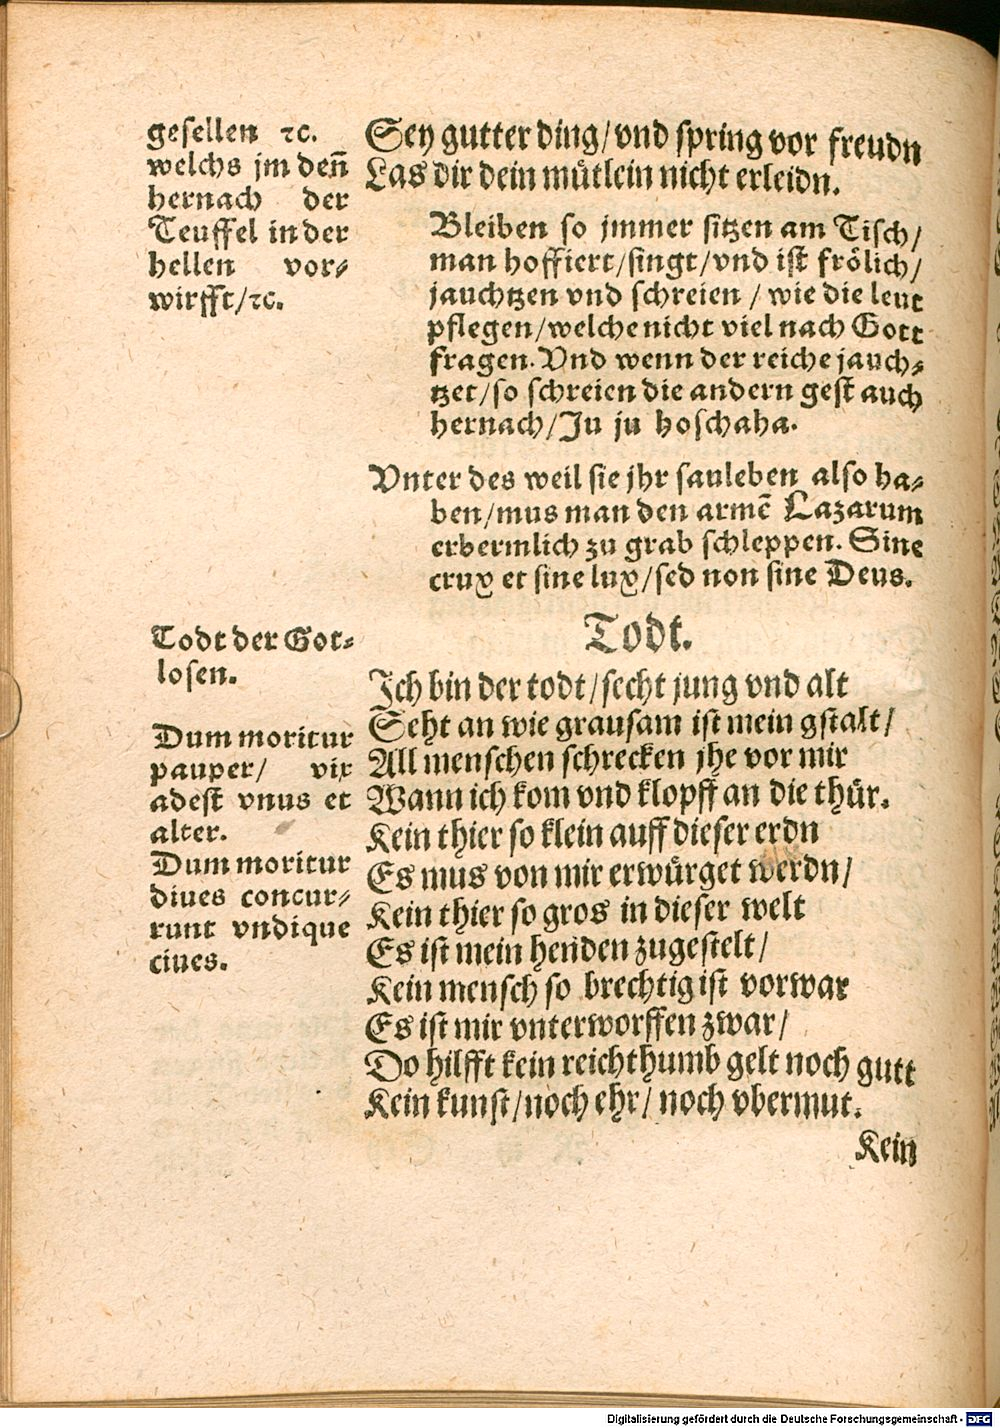 gesellen ⁊c.
welchs jm deñ
hernach der
Teuffel in der
hellen vor⸗
wirfft/⁊c.
Sey gutter ding/vnd spring vor freudn
Las dir dein mütlein nicht erleidn.
Bleiben so jmmer sitzen am Tisch/
man hoffiert/singt/vnd ist frölich/
jauchtzen vnd schreien / wie die leut
pflegen/welche nicht viel nach Gott
fragen. Vnd wenn der reiche jauch⸗
tzet/so schreien die andern gest auch
hernach/Ju ju hoschaha.
Vnter des weil sie jhr sauleben also ha⸗
ben/mus man den armẽ Lazarum
erbermlich zu grab schleppen. Sine
crux et sine lux/sed non sine Deus.
Todt der Got⸗
losen.
Dum moritur
pauper/ vix
adest vnus et
alter.
Dum moritur
diues concur⸗
runt vndique
ciues.
Todt.
Ich bin der todt/secht jung vnd alt
Seht an wie grausam ist mein gstalt/
All menschen schrecken jhe vor mir
Wann ich kom vnd klopff an die thür.
Kein thier so klein auff dieser erdn
Es mus von mir erwürget werdn/
Kein thier so gros in dieser welt
Es ist mein henden zugestelt/
Kein mensch so brechtig ist vorwar
Es ist mir vnterworffen zwar/
Do hilfft kein reichthumb gelt noch gutt
Kein kunst/noch ehr/ noch vbermut.
Kein
Digitalisierung gefördert durch die Deutsche Forschungsgemeinschaft - DFG